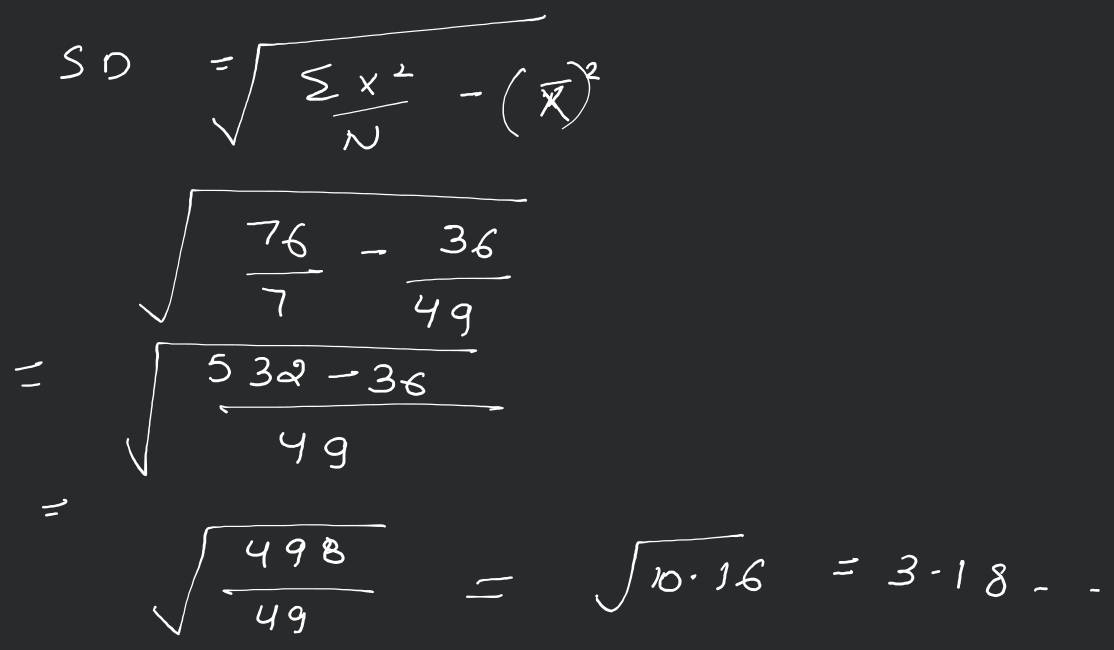 SD = √(Σx²/N - (x̄)²)
√(76/7 - 36/49)
= √((532 - 36)/49)
= √(498/49) = √10.16 = 3.18 - -